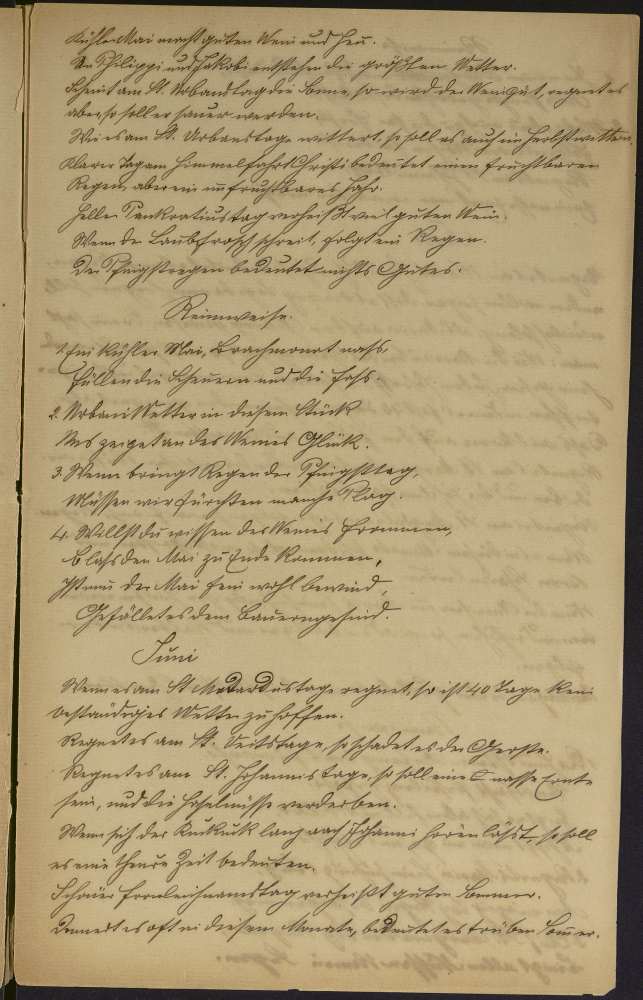 Kühler Mai macht guten Wein und Heu.
An Philippi und Jakobi entstehen die größten Wetter.
Scheint am St. Urbanstag die Sonne, so wird der Wein gut, regnet es
aber, so soll er sauer werden.
Wie es am St. Urbanstage wittert, so soll es auch im Herbst wittern.
Klarer Tag am Himmelfahrt Christi bedeutet einen fruchtbaren
Regen, aber ein unfruchtbares Jahr.
Heller Pankratiustag verheißt viel guten Wein.
Wenn der Laubfrosch schreit, folgt ein Regen.
Der Pfingstregen bedeutet nichts Gutes.
Reimweise.
1. Ein kühler Mai, Brachmonat nass,
füllen die Scheuern und die Fass.
2. Urbani Wetter in diesem Stück
Uns zeiget an des Weines Glück.
3. Wenn bringt Regen der Pfingsttag,
Müssen wir fürchten manche Plag.
4. Willst du wissen des Weines Frommen,
Lass den Mai zu Ende kommen,
Ist nun der Mai fein wohl bewind,
Gefället es dem Bauerngesind.
Juni
Wenn es am St Medardustage regnet, so ist 40 Tage kein
beständiges Wetter zu hoffen.
Regnet es am St. Veitstage, so schadet es der Gerste.
Regnet es am St. Johannistage, so soll eine nasse Ernte
sein, und die Haselnüsse verderben.
Wenn sich der Kuckuck lang nach Johanni hören läßt, so soll
es eine theure Zeit bedeuten.
Schöner Fronleichnamstag verheißt guten Sommer.
Donnert es oft in diesem Monate, bedeutet es trüben Som̄er.